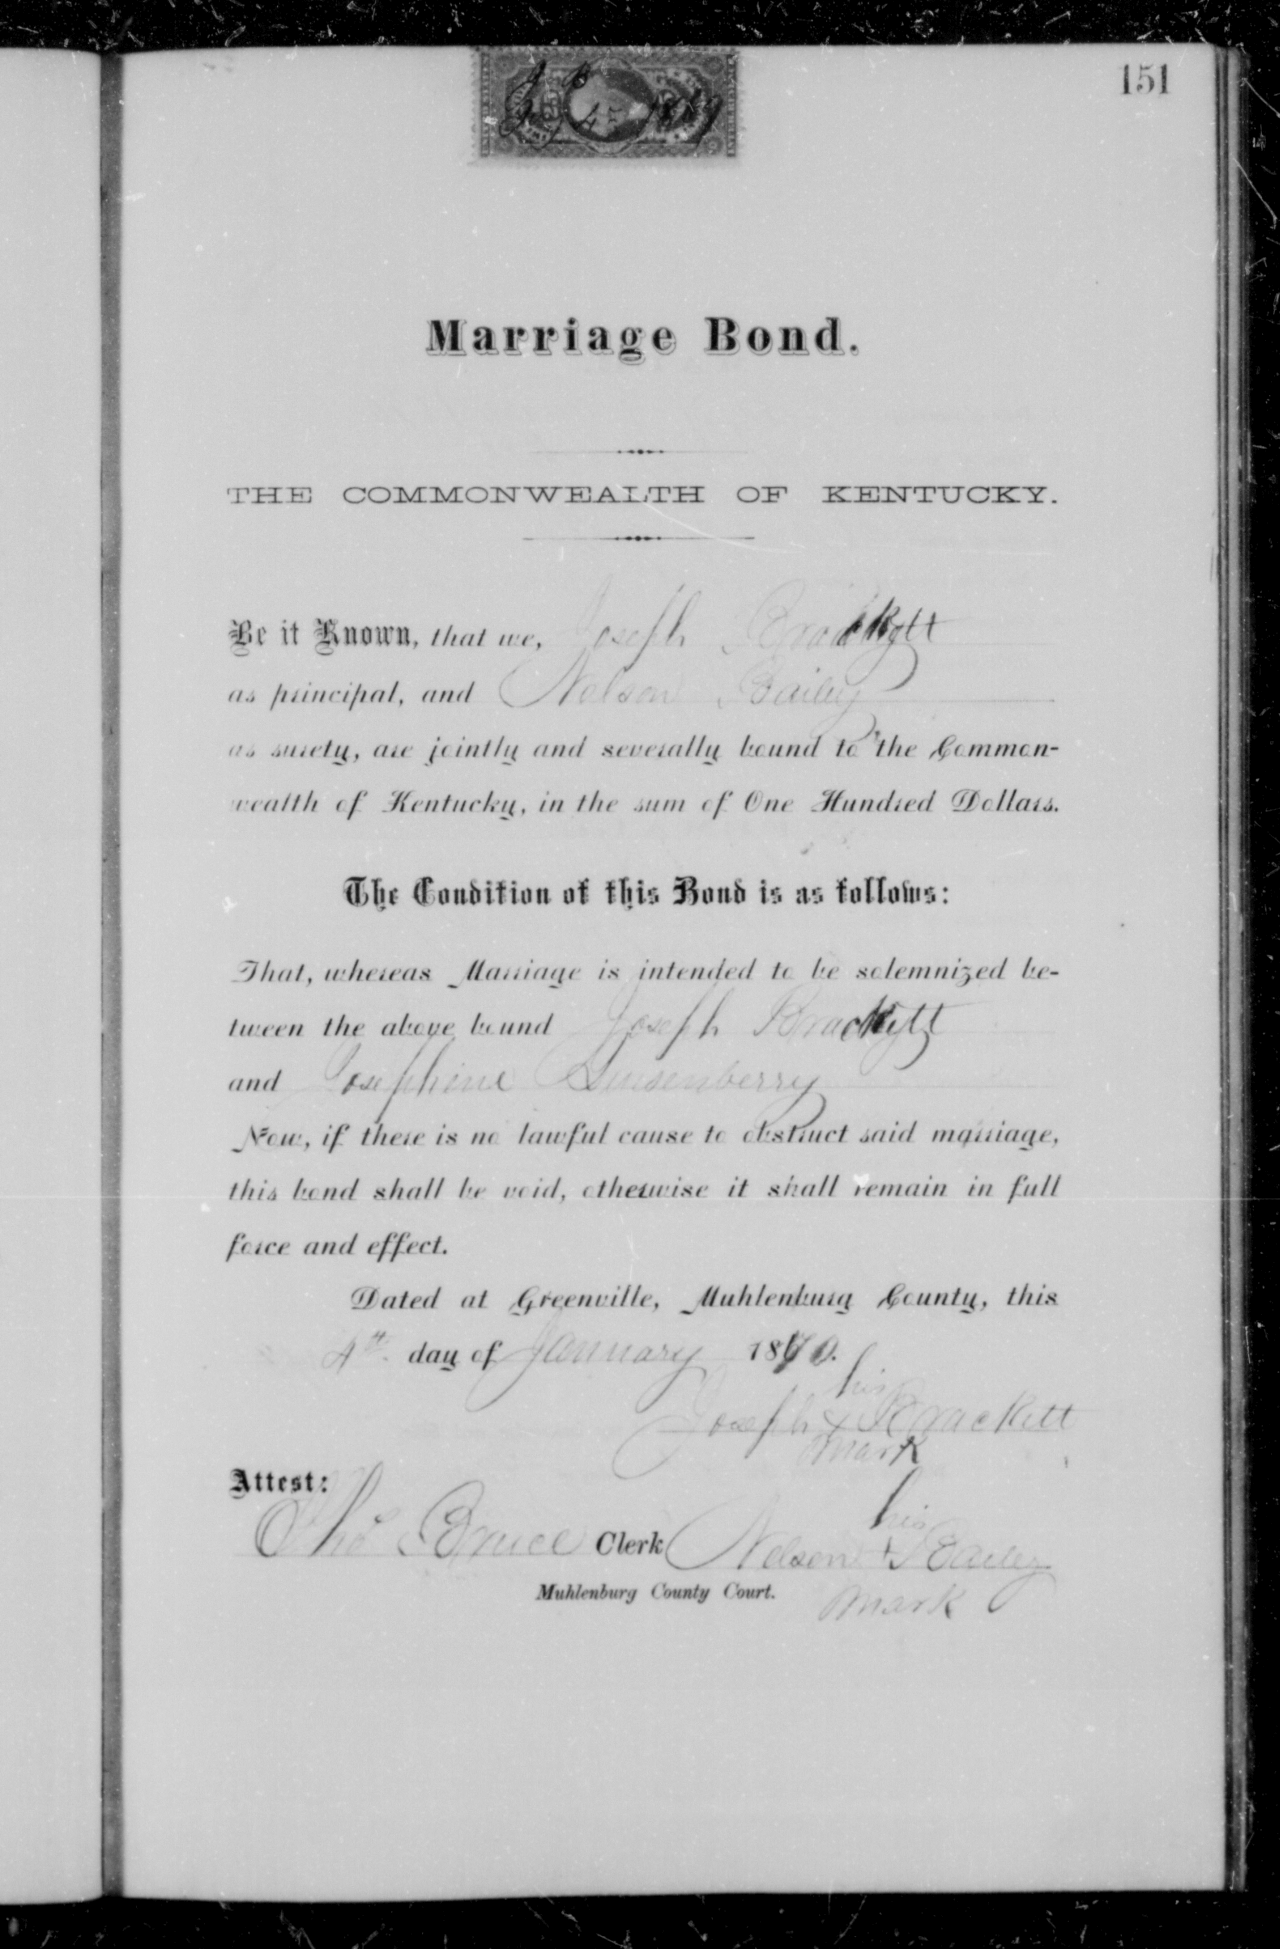 151
J B
Jany 4th 1869
Marriage Bond.
THE COMMONWEALTH OF KENTUCKY.
Be it Known, that we, Joseph Brackett
as principal, and Nelson Bailey
as surety, are jointly and severally bound to the Common-
wealth of Kentucky, in the sum of One Hundred Dollars.
The Condition of this Bond is as follows:
That, whereas Marriage is intended to be solemnized be-
tween the above bound Joseph Brackett
and Josephine Quisenberry
Now, if there is no lawful cause to obstruct said marriage,
this bond shall be void, otherwise it shall remain in full
force and effect.
Dated at Greenville, Muhlenburg County, this
4th day of January 1870.
his
Joseph x Brackett
mark
Attest:
his
Tho Bruce Clerk Nelson + Bailey
Muhlenburg County Court.
mark